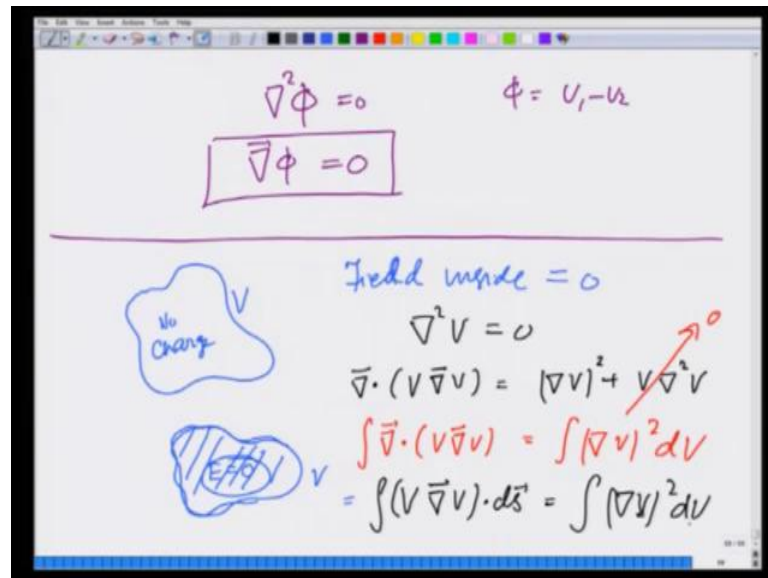 File Edit View Insert Actions Tools Help
∇²Φ = 0
Φ = V₁ - V₂
∇⃗Φ = 0
Field inside = 0
No
Charg
V
∇²V = 0
∇⃗·(V∇⃗V) = (∇V)² + V∇²V → 0
∫∇⃗·(V∇⃗V) = ∫(∇V)² dV
E=0
V
= ∫(V∇⃗V)·ds⃗ = ∫(∇V)² dV